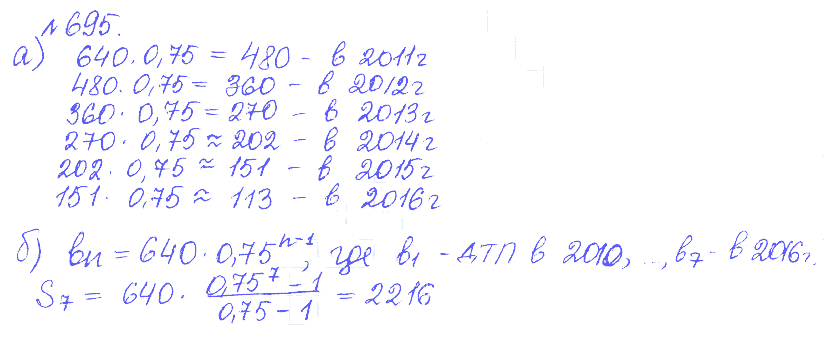 №695.
а) 640·0,75 = 480 – в 2011г
480·0,75 = 360 – в 2012г
360·0,75 = 270 – в 2013г
270·0,75 ≈ 202 – в 2014г
202·0,75 ≈ 151 – в 2015г
151·0,75 ≈ 113 – в 2016г
б) bn = 640·0,75^{n-1}, где b₁ - ДТП в 2010, ..., b₇ - в 2016г.
S₇ = 640 · \frac{0,75^7 - 1}{0,75 - 1} = 2216